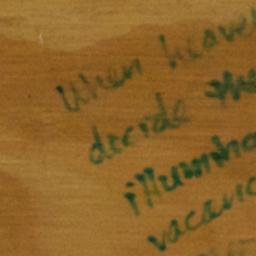 When heave
decide the
illumina
vacanc